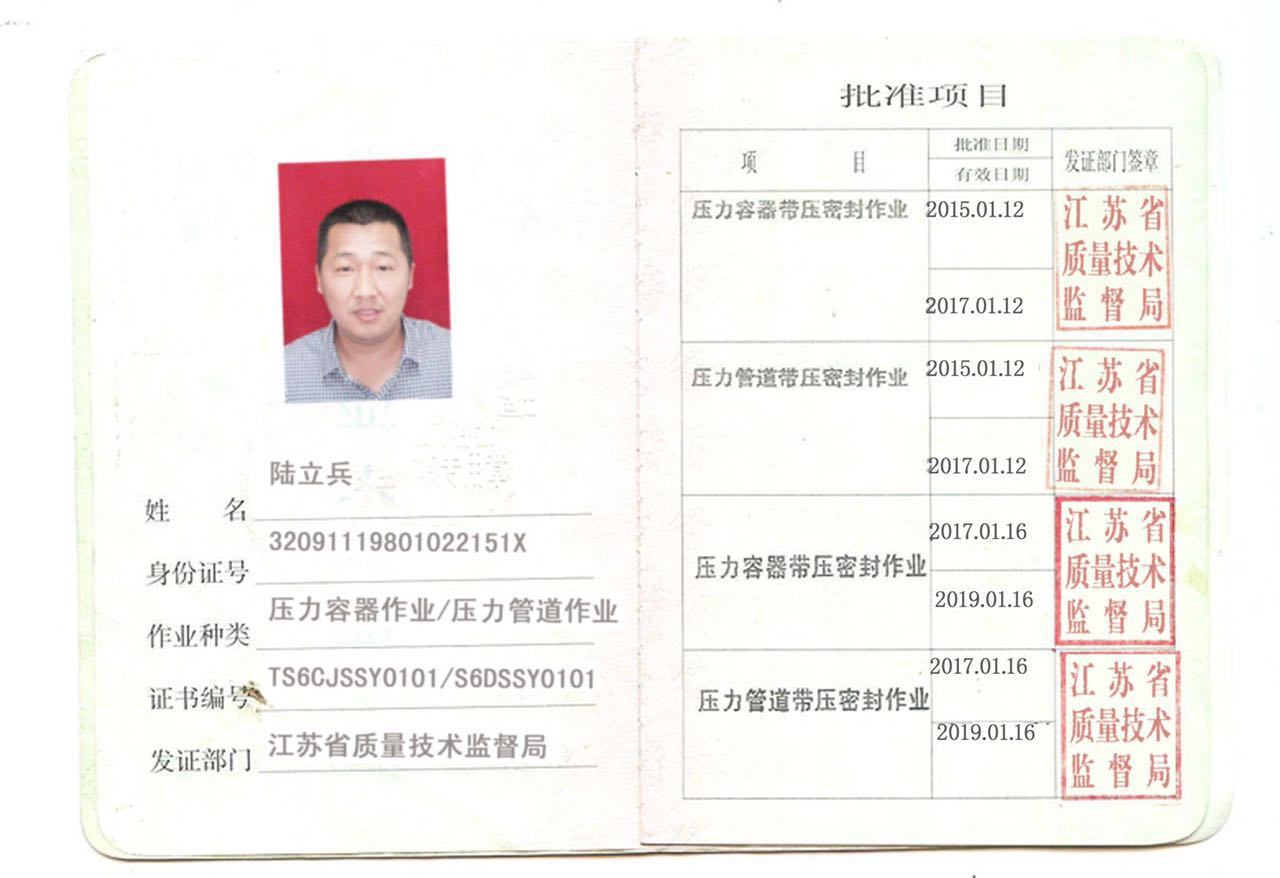 陆立兵
姓 名
32091119801022151X
身份证号
压力容器作业/压力管道作业
作业种类
TS6CJSSY0101/S6DSSY0101
证书编号
江苏省质量技术监督局
发证部门
批准项目
项 目
批准日期
有效日期
发证部门签章
压力容器带压密封作业
2015.01.12
2017.01.12
江苏省
质量技术
监督局
压力管道带压密封作业
2015.01.12
2017.01.12
江苏省
质量技术
监督局
压力容器带压密封作业
2017.01.16
2019.01.16
江苏省
质量技术
监督局
压力管道带压密封作业
2017.01.16
2019.01.16
江苏省
质量技术
监督局